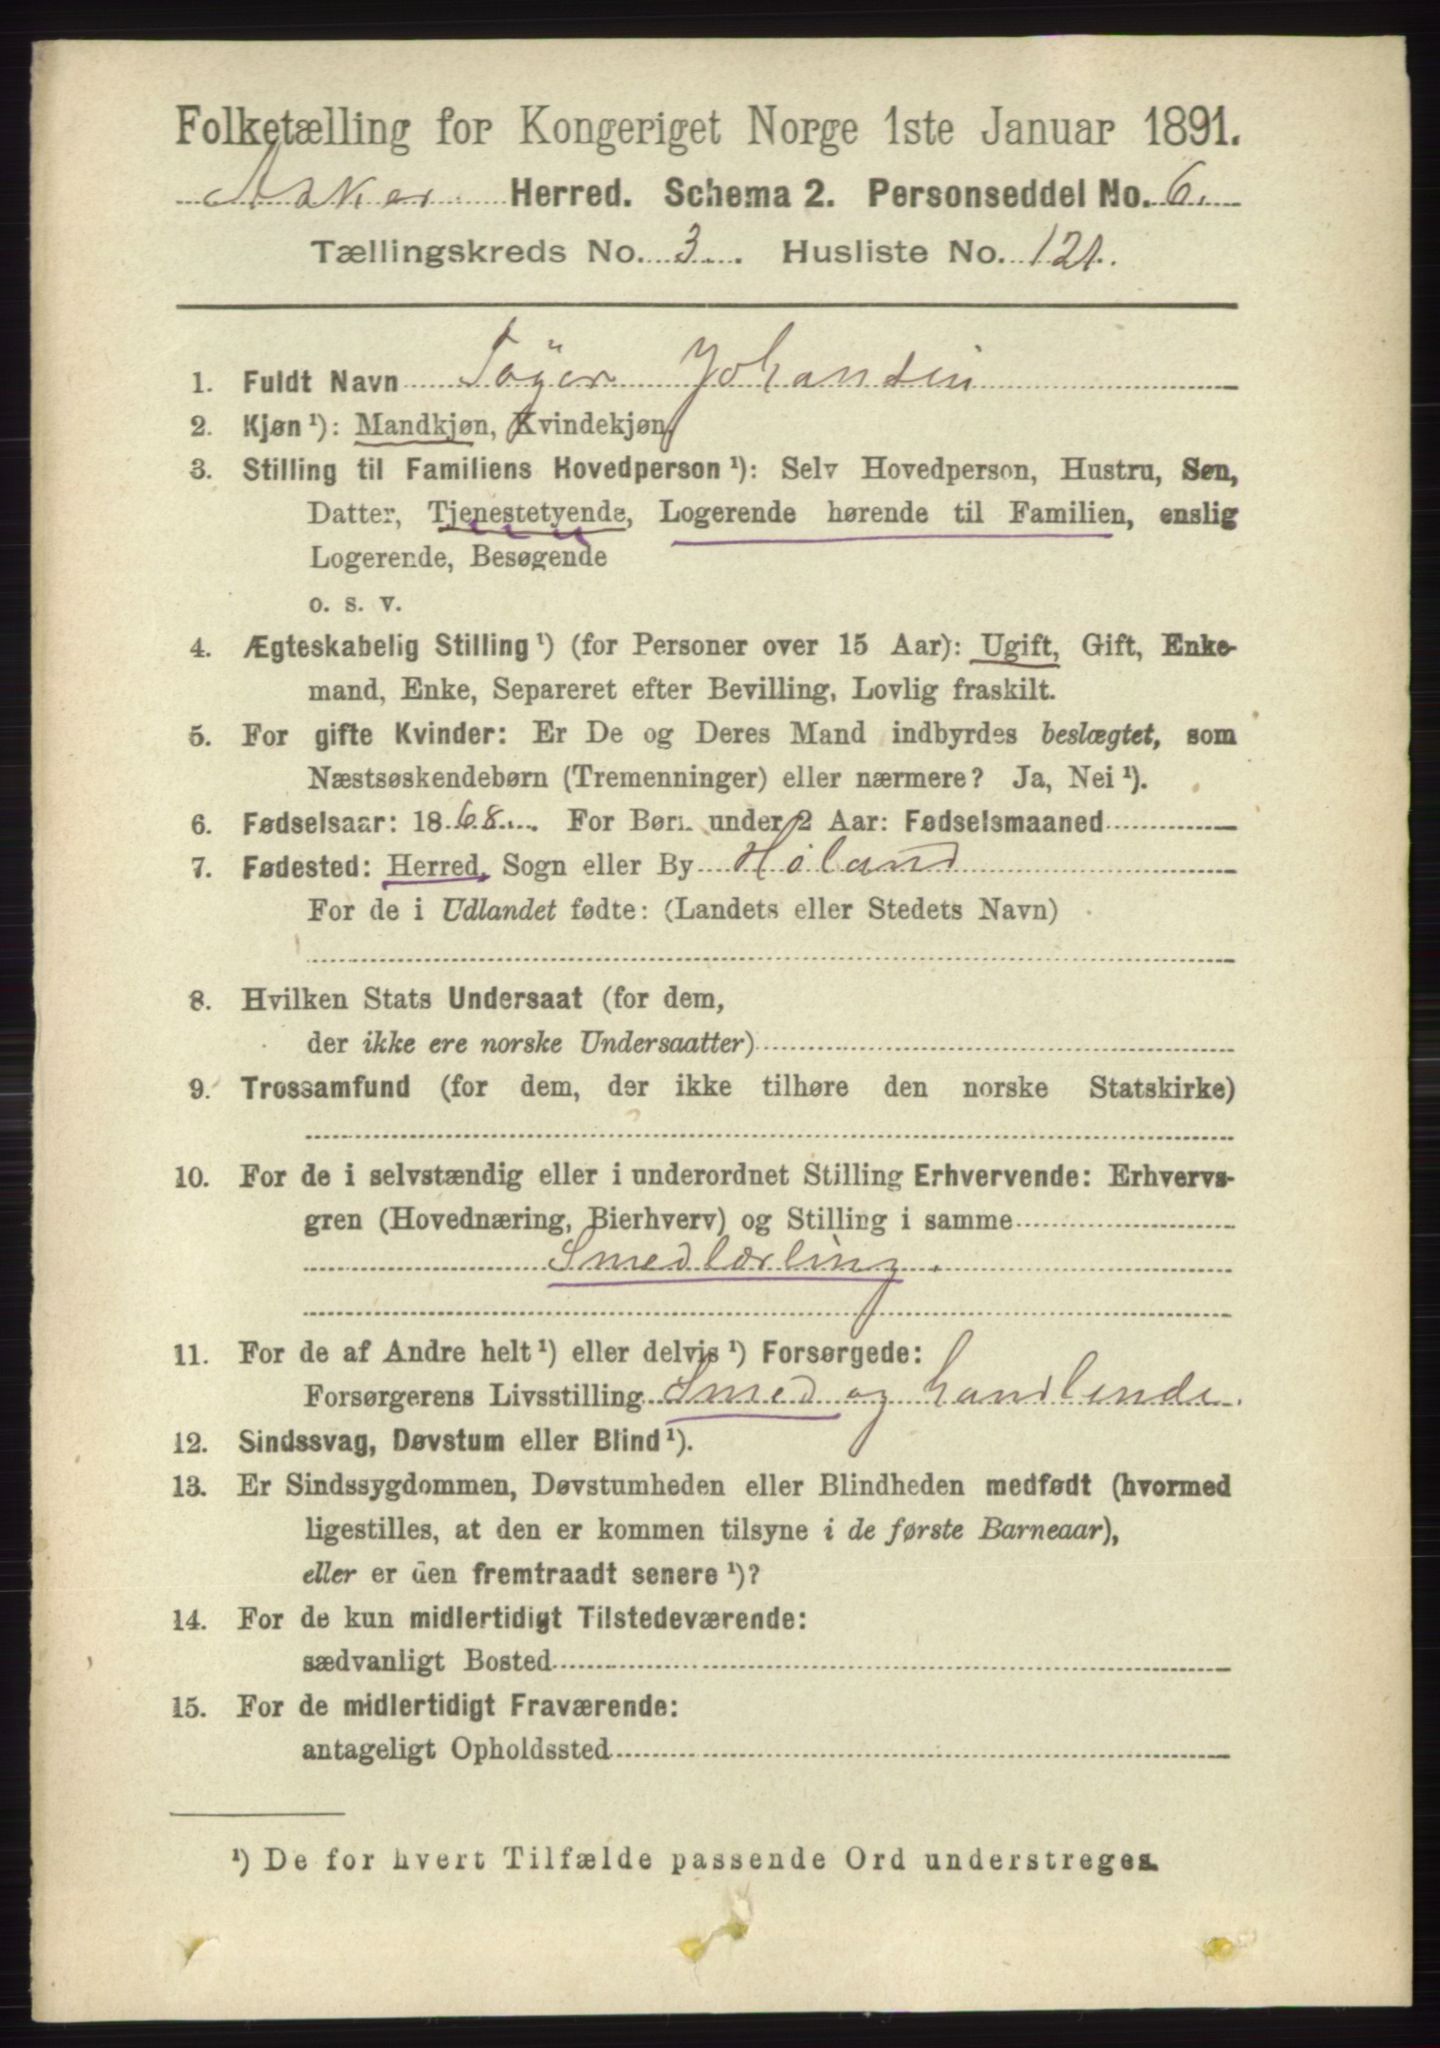 Folketælling for Kongeriget Norge 1ste Januar 1891.
Asker Herred. Schema 2. Personseddel No. 6.
Tællingskreds No. 3. Husliste No. 121.
1. Fuldt Navn Töger Johansen
2. Kjøn ¹): Mandkjøn, Kvindekjøn,
3. Stilling til Familiens Hovedperson ¹): Selv Hovedperson, Hustru, Søn,
Datter, Tjenestetyende, Logerende hørende til Familien, enslig
Logerende, Besøgende
o. s. v.
4. Ægteskabelig Stilling ¹) (for Personer over 15 Aar): Ugift, Gift, Enke-
mand, Enke, Separeret efter Bevilling, Lovlig fraskilt.
5. For gifte Kvinder: Er De og Deres Mand indbyrdes beslægtet, som
Næstsøskendebørn (Tremenninger) eller nærmere? Ja, Nei ¹).
6. Fødselsaar: 1868. For Børn under 2 Aar: Fødselsmaaned
7. Fødested: Herred, Sogn eller By Høland
For de i Udlandet fødte: (Landets eller Stedets Navn)
8. Hvilken Stats Undersaat (for dem,
der ikke ere norske Undersaatter)
9. Trossamfund (for dem, der ikke tilhøre den norske Statskirke)
10. For de i selvstændig eller i underordnet Stilling Erhvervende: Erhvervs-
gren (Hovednæring, Bierhverv) og Stilling i samme
Smedlærling.
11. For de af Andre helt ¹) eller delvis ¹) Forsørgede:
Forsørgerens Livsstilling Smed og handlende.
12. Sindssvag, Døvstum eller Blind ¹).
13. Er Sindssygdommen, Døvstumheden eller Blindheden medfødt (hvormed
ligestilles, at den er kommen tilsyne i de første Barneaar),
eller er den fremtraadt senere ¹)?
14. For de kun midlertidigt Tilstedeværende:
sædvanligt Bosted
15. For de midlertidigt Fraværende:
antageligt Opholdssted
¹) De for hvert Tilfælde passende Ord understreges.